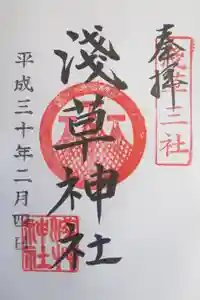 奉拝
浅草三社
淺草神社
平成三十年二月四日
淺草神社